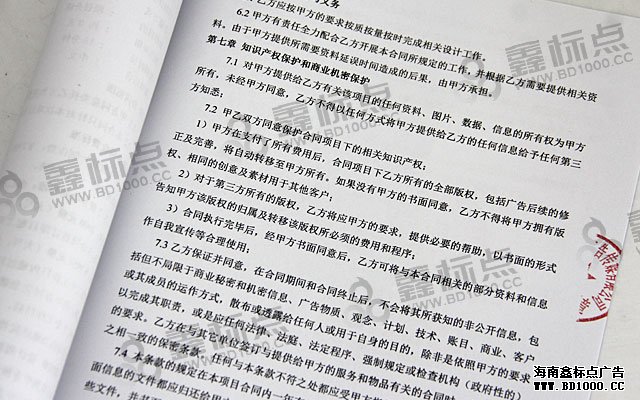 乙方应按甲方的要求按质按量按时完成相关设计工作。
6.2 甲方有责任全力配合乙方开展本合同所规定的工作，并根据乙方需要提供相关资
料。由于甲方提供所需要资料延误时间造成的后果，由甲方承担。
第七章 知识产权保护和商业机密保护
7.1 对甲方提供给乙方有关该项目的任何资料、图片、数据、信息的所有权为甲方
所有，未经甲方同意，乙方不得以任何方式将甲方提供给乙方的任何信息给予任何第三
方知悉；
7.2 甲乙双方同意保护合同项目下的相关知识产权；
1）甲方在支付了所有费用后，合同项目下乙方所有的全部版权，包括广告后续的修
正及完善，将自动转移至甲方所有。如果没有甲方的书面同意，乙方不得将甲方拥有版
权、相同的创意及素材用于其他客户；
2）对于第三方所有的版权，乙方将应甲方的要求，提供必要的帮助，以书面的形式
告知甲方该版权的归属及转移该版权所必须的费用和程序；
3）合同执行完毕后，经甲方书面同意后，乙方可将与本合同相关的部分资料和信息
作自我宣传等合理使用；
7.3 乙方保证并同意，在合同期间和合同终止后，不会将其所获知的非公开信息，包
括但不局限于商业秘密和机密信息、广告物质、观念、计划、技术、账目、商业、客户
或其成员的运作方式，散布或透露给任何人或用于自身的目的，除非是依照甲方的要求
以完成其职责，或是应任何法律、法庭、法定程序、强制规定或检查机构（政府性的）
的要求。乙方在与其它单位签订与提供给甲方的服务和物品有关的合同时
之相一致的保密条款。任何与本条款不符之处都应受甲方
7.4 本条款的规定在本项目合同内一年
面信息的文件都应归还给甲方
些文件，并
鑫标点
WWW.BD1000.CC
海南鑫标点广告
WWW.BD1000.CC